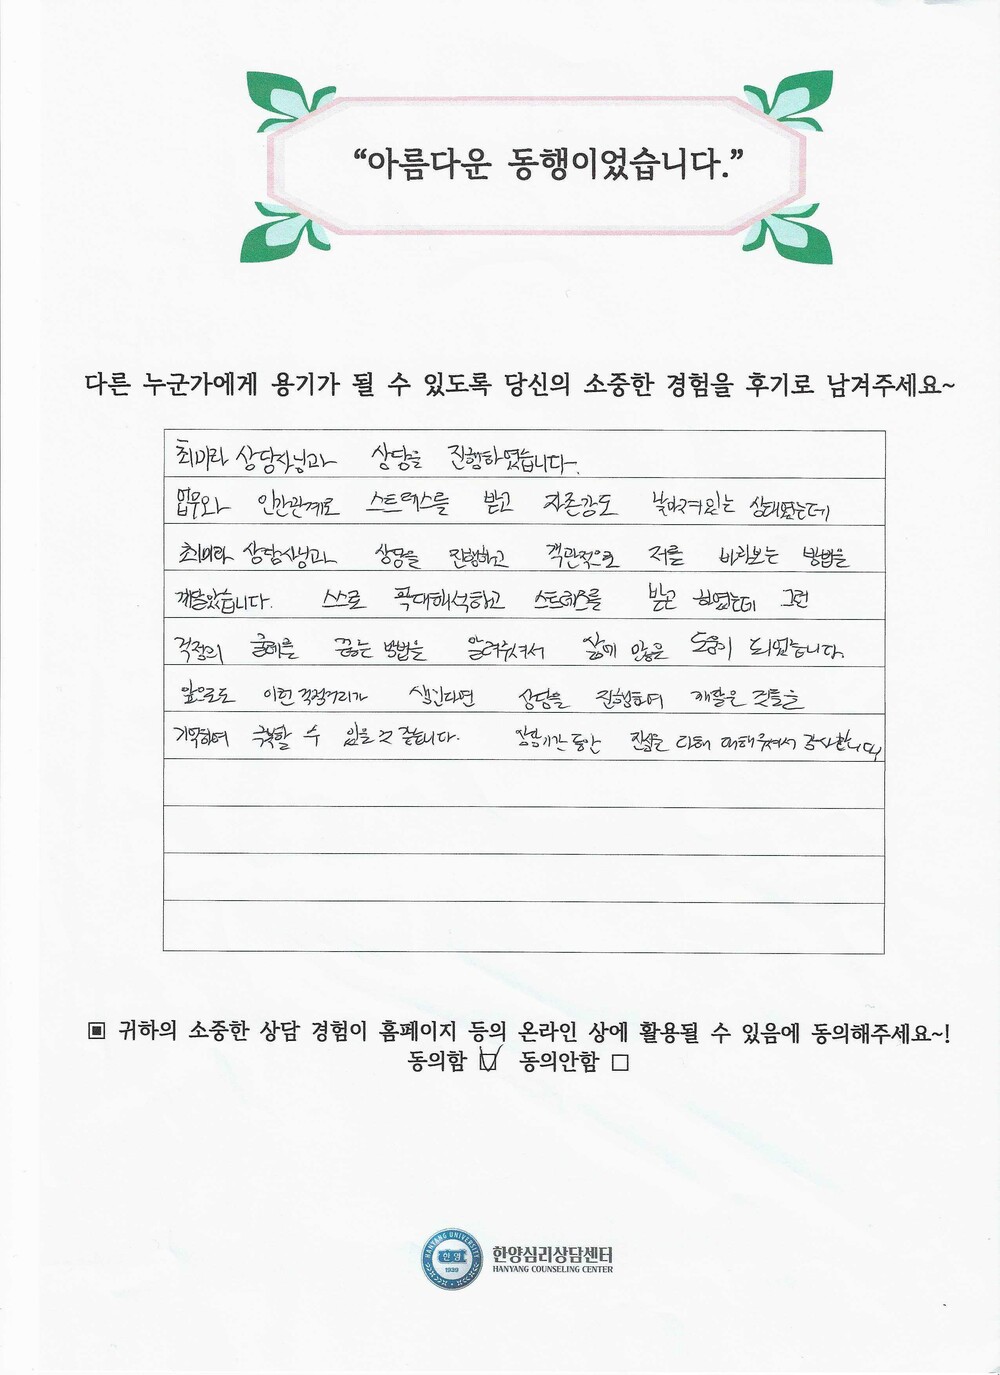 “아름다운 동행이었습니다.”
다른 누군가에게 용기가 될 수 있도록 당신의 소중한 경험을 후기로 남겨주세요~
최미라 상담사님과 상담을 진행하였습니다.
업무와 인간관계로 스트레스를 받고 자존감도 낮아져있는 상태였는데
최미라 상담사님과 상담을 진행하고 객관적으로 저를 바라보는 방법을
깨달았습니다. 스스로 확대해석하고 스트레스를 받고 하였는데 그런
걱정의 굴레를 끊는 방법을 알려주셔서 삶에 많은 도움이 되었습니다.
앞으로도 이런 걱정거리가 생긴다면 상담을 진행하며 깨달은 것들을
기억하며 극복할 수 있을 것 같습니다. 상담기간 동안 진심을 다해 대해주셔서 감사합니다
▣ 귀하의 소중한 상담 경험이 홈페이지 등의 온라인 상에 활용될 수 있음에 동의해주세요~!
동의함 ☑ 동의안함 □
HANYANG UNIVERSITY
한양
1939
한양심리상담센터
HANYANG COUNSELING CENTER